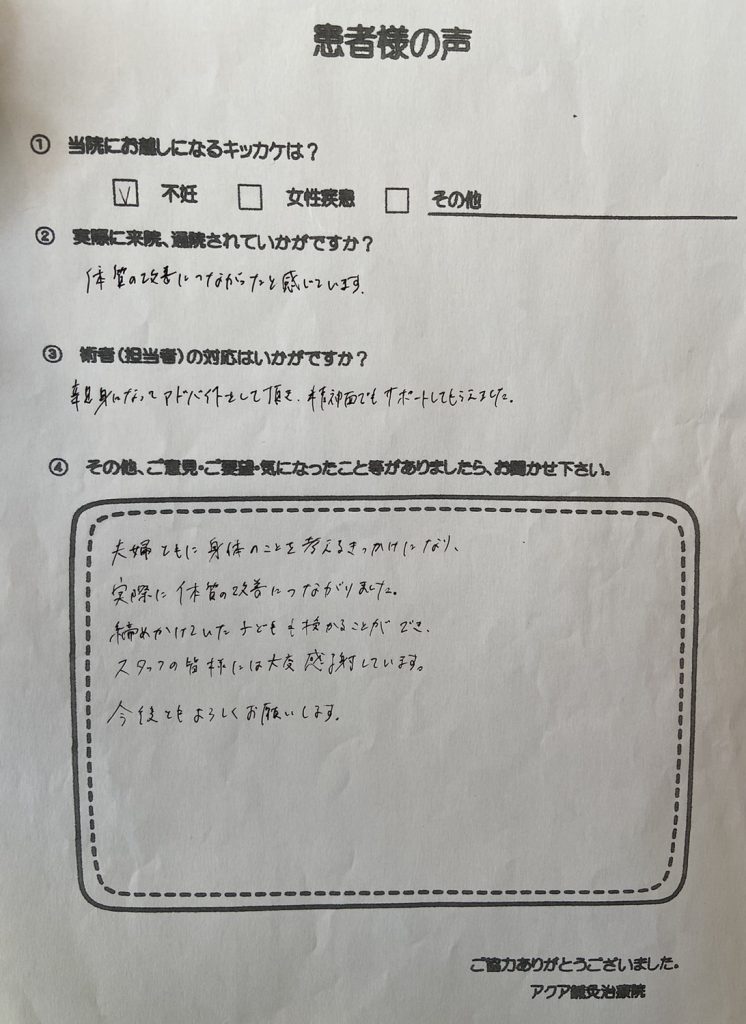 患者様の声
① 当院にお越しになるキッカケは？
☑ 不妊 □ 女性疾患 □ その他
② 実際に来院、通院されていかがですか？
体質の改善につながったと感じています。
③ 術者（担当者）の対応はいかがですか？
親身になってアドバイトをして頂き、精神面でもサポートしてもらえました。
④ その他、ご意見・ご要望・気になったこと等がありましたら、お聞かせ下さい。
夫婦ともに身体のことを考えるきっかけになり、
実際に体質の改善につながりました。
諦めかけていた子どもも授かることができ、
スタッフの皆様には大変感謝しています。
今後ともよろしくお願いします。
ご協力ありがとうございました。
アクア鍼灸治療院